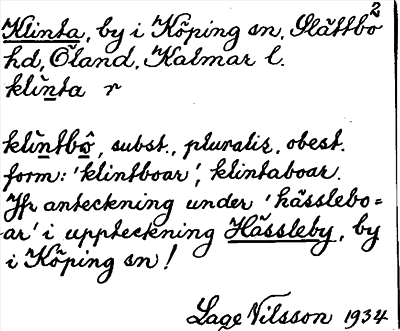 Klinta, by i Köping sn, Slättbo 2
hd, Öland, Kalmar l.
klìnta r
klìntbô, subst., pluralis, obest.
form: 'klintboar', klintaboar.
Jfr anteckning under 'hässlebo=
ar' i uppteckning Hässleby, by
i Köping sn!
Lage Nilsson 1934